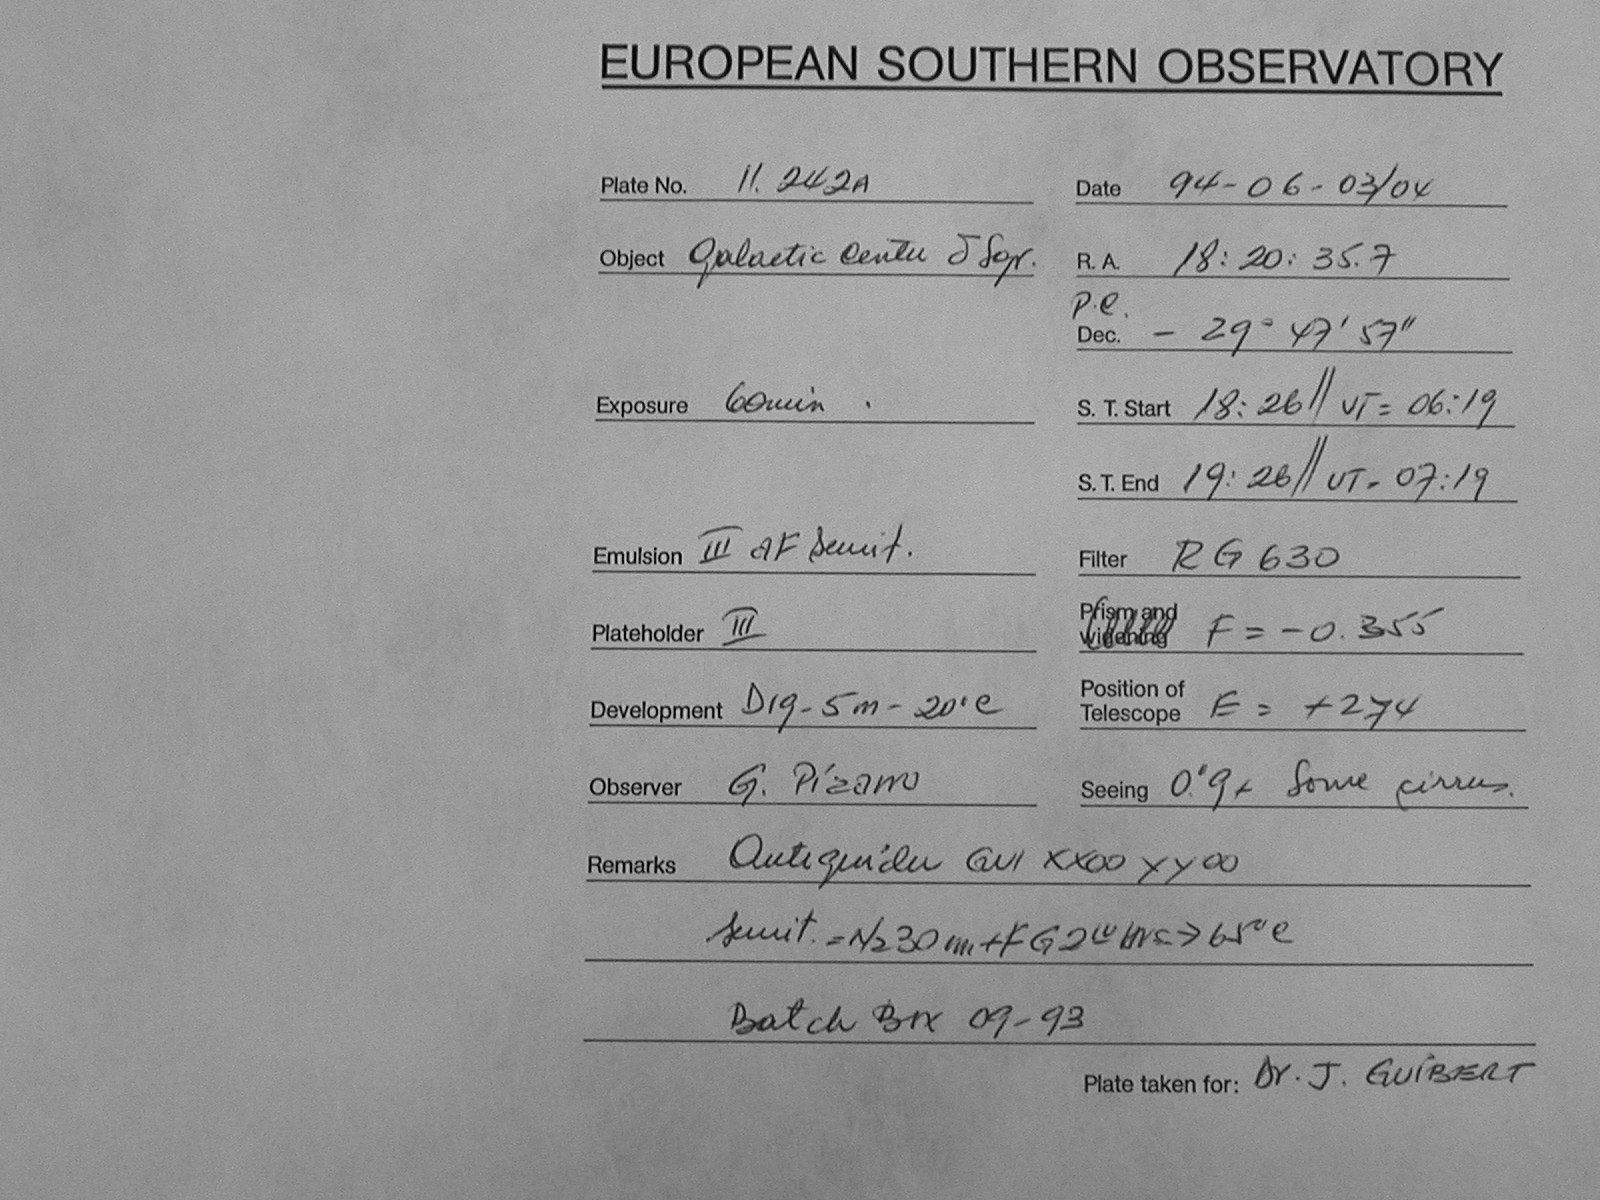 EUROPEAN SOUTHERN OBSERVATORY
Plate No. 11.242A
Date 94-06-03/04
Object Galactic Center δ Sgr.
R. A. 18:20:35.7
P.e.
Dec. - 29° 47' 57"
Exposure 60min.
S. T. Start 18:26// UT= 06:19
S. T. End 19:26// UT- 07:19
Emulsion III aF Sensit.
Filter RG 630
Plateholder III
Prism and widening F = -0.355
Development D19-5m-20°C
Position of Telescope E = +274
Observer G. Pizarro
Seeing 0"9 Some cirrus.
Remarks Autoguider GVI XX00 YY00
Sensit. = N2 30m+FG 2 → 65°C
Batch Box 09-93
Plate taken for: Dr. J. GUIBERT